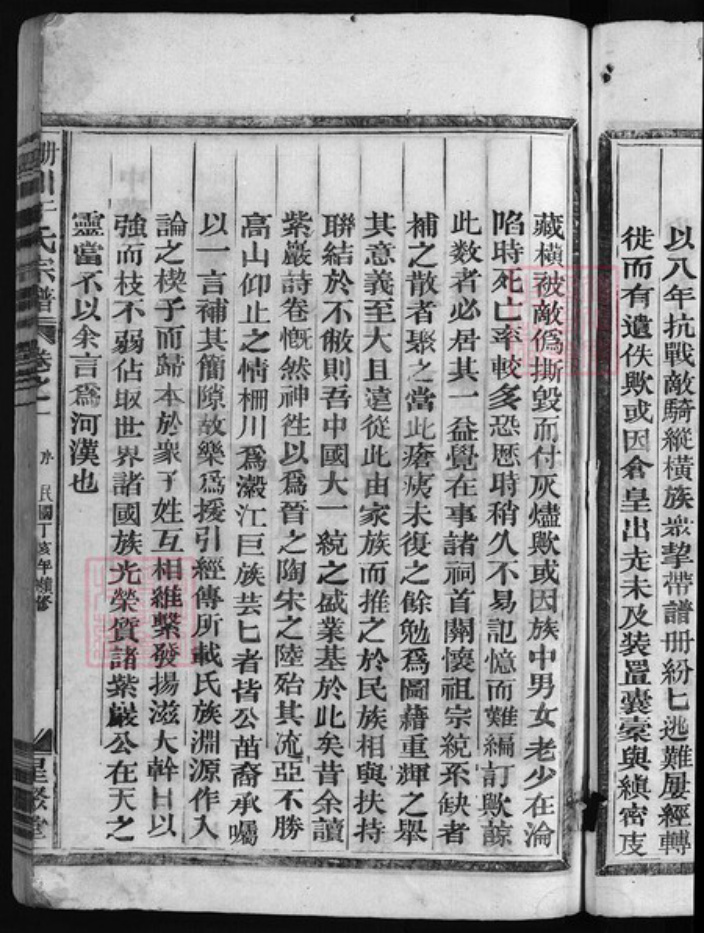 以八年抗戰敵騎縱橫族衆挈帶譜册紛匕逃難屢經轉
徙而有遺佚歟或因倉皇出走未及装置囊橐與縝密庋
藏橫被敵僞撕毀而付灰燼歟或因族中男女老少在淪
陷時死亡率較多恐歷時稍久不易記憶而難編訂歟諒
此數者必居其一益覺在事諸祠首關懷祖宗統系缺者
補之散者聚之當此瘡痍未復之餘勉爲圖藉重輝之舉
其意義至大且遠從此由家族而推之於民族相與扶持
聯結於不敝則吾中國大一統之盛業基於此矣昔余讀
紫巖詩卷慨然神徃以爲晉之陶宋之陸殆其流亞不勝
高山仰止之情柵川爲瀫江巨族芸匕者皆公苗裔承囑
以一言補其簡隙故樂爲援引經傳所載氏族淵源作入
論之楔子而歸本於衆子姓互相維繫發揚滋大幹日以
強而枝不弱佔取世界諸國族光榮質諸紫巖公在天之
靈當不以余言爲河漢也
柵川于氏宗譜 卷之一 序 民國丁亥年續修